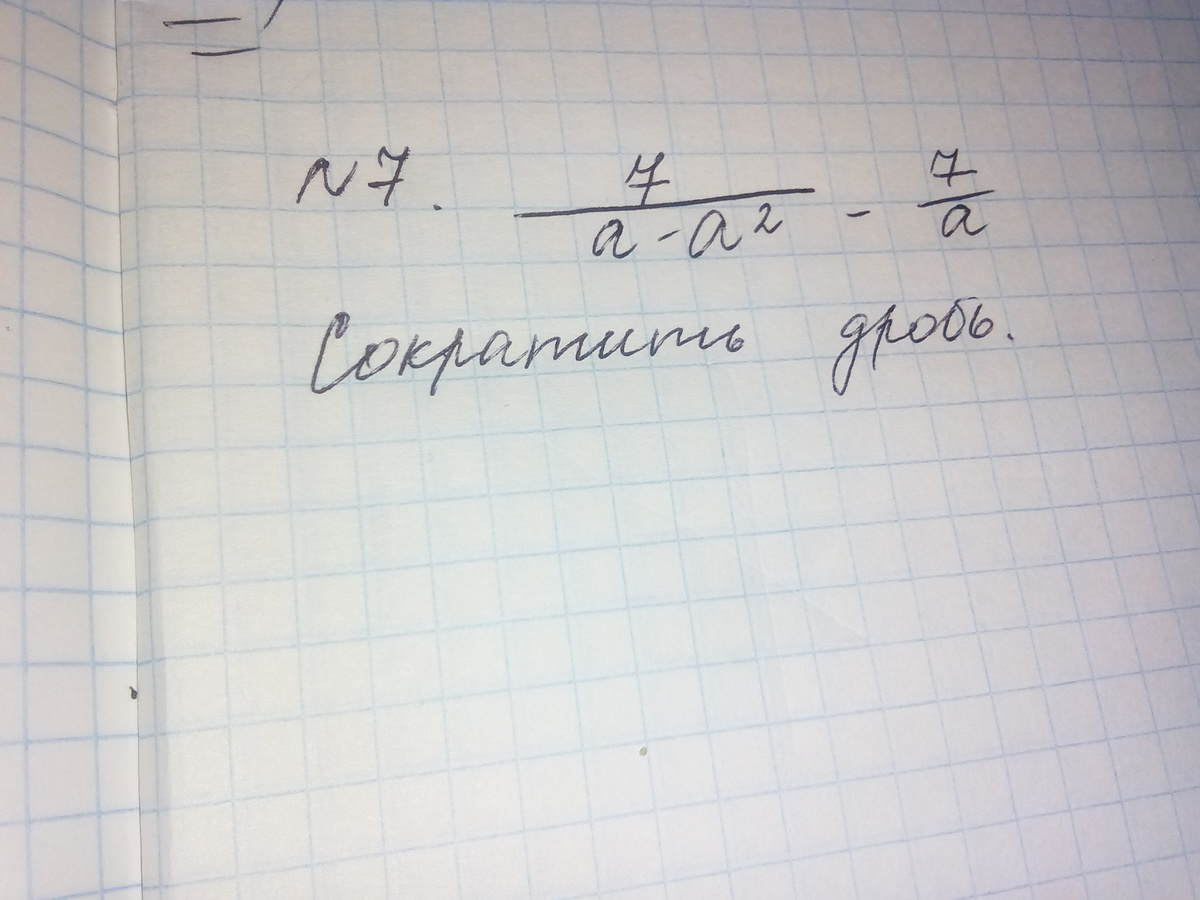 N7. 7/(a-a²) - 7/a
Сократить дробь.